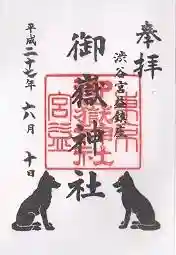 奉拝
渋谷宮益鎮座
御嶽神社
平成二十七年 六月 十日
東京
御嶽神社
宮益